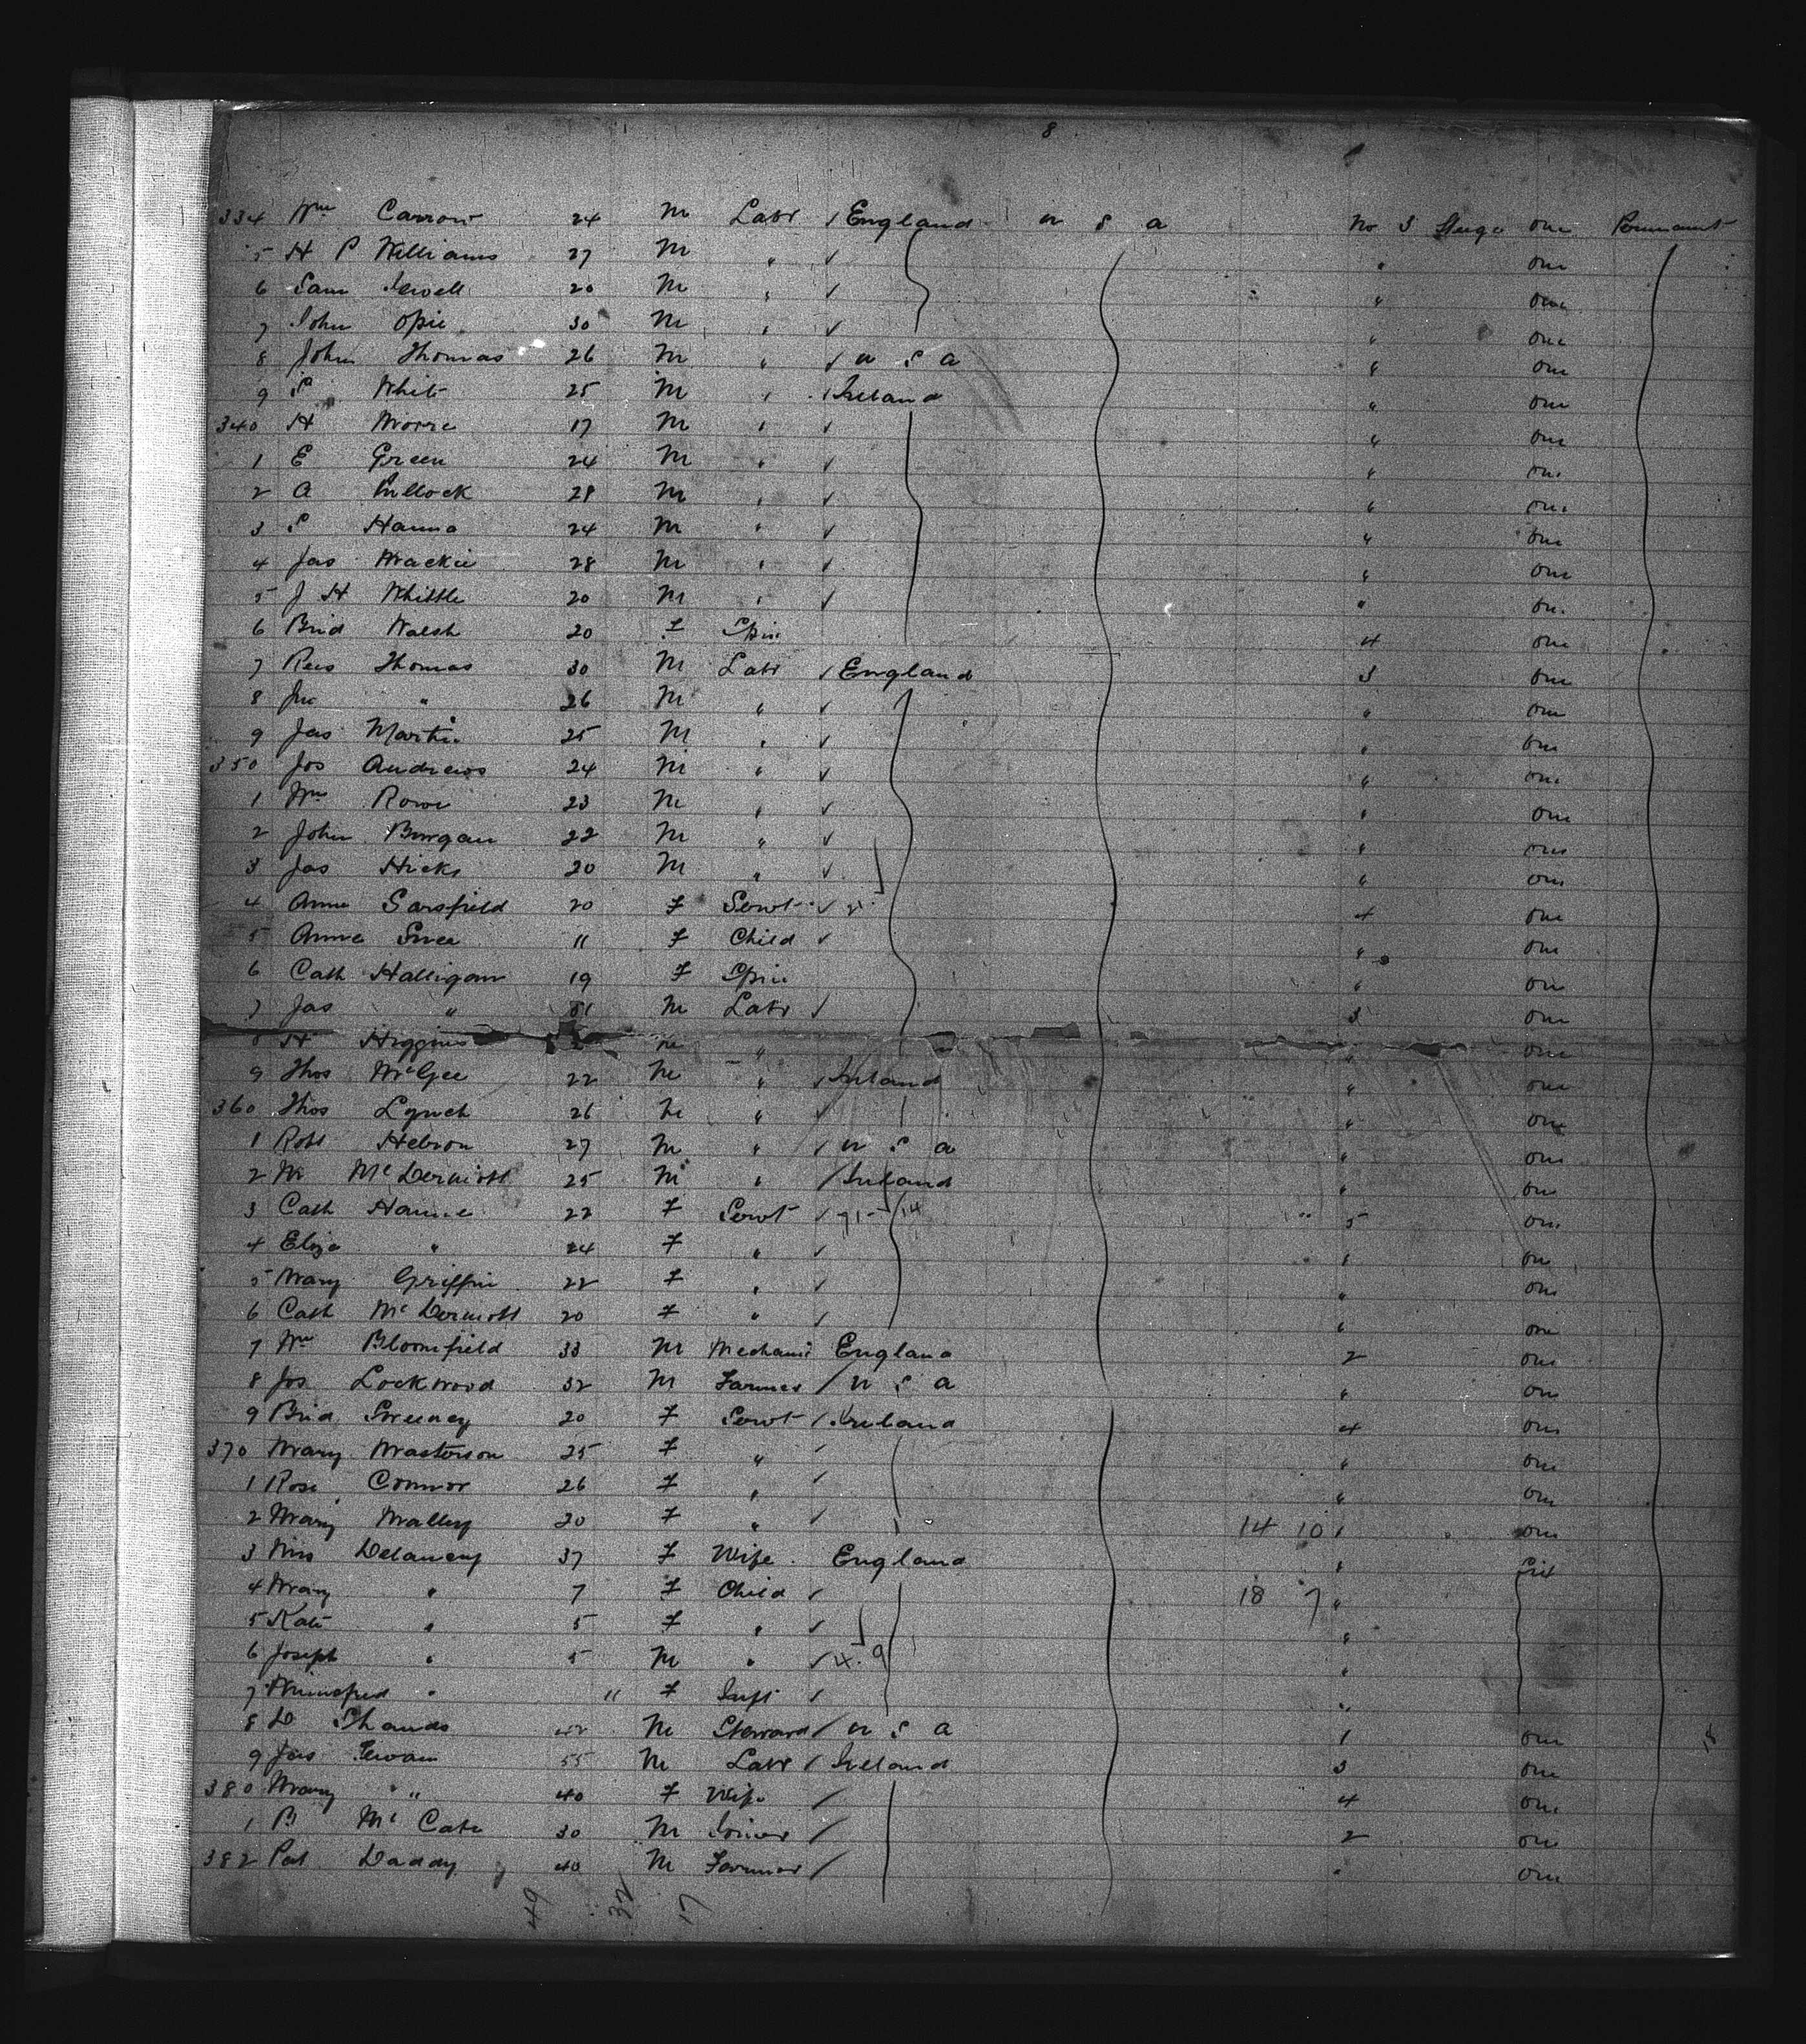 8
334 Wm Carrow 24 M Labr / England U S A No 3 Steerage One Permanent
5 H P Williams 27 M " ✓ " One
6 Sam Sewell 20 M " ✓ " One
7 John Opie 30 M " ✓ " One
8 John Thomas 26 M " ✓ U S A " One
9 S White 25 M " / Ireland " One
340 H Moore 17 M " ✓ " One
1 E Green 24 M " ✓ " One
2 A Pullock 28 M " ✓ " One
3 S Hanna 24 M " ✓ " One
4 Jas Mackie 28 M " ✓ " One
5 J H Whittle 20 M " ✓ " One
6 Brid Walsh 20 F Spin 4 One
7 Rees Thomas 30 M Labr / England 3 One
8 Jno " 26 M " ✓ " One
9 Jas Martin 25 M " ✓ " One
350 Jos Andrews 24 M " ✓ " One
1 Wm Rowe 23 M " ✓ " One
2 John Burgan 22 M " ✓ " One
3 Jas Hicks 20 M " ✓ " One
4 Anne Sarsfield 20 F Servt ✓ 4 One
5 Anne 11 F Child ✓ " One
6 Cath Halligan 19 F Spin " One
7 Jas " M Labr / 3 One
8 H Higgins M " " One
9 Thos McGee 22 M " ✓ Ireland " One
360 Thos Lynch 26 M " ✓ " One
1 Robt Hebron 27 M " ✓ U S A " One
2 M McDermott 25 M " / Ireland " One
3 Cath Hanna 22 F Servt / 71 - 14 5 One
4 Eliza " 24 F " ✓ " One
5 Mary Griffin 22 F " ✓ " One
6 Cath McDermott 20 F " ✓ " One
7 Wm Bloomfield 33 M Mechanic England 2 One
8 Jos Lockwood 32 M Farmer / U S A " One
9 Brid Sweeney 20 F Servt / Ireland 4 One
370 Mary Masterson 25 F " ✓ " One
1 Rose Connor 26 F " ✓ " One
2 Mary Malley 20 F " ✓ 14 10 " One
3 Mrs Delaney 37 F Wife England " Six
4 Mary " 7 F Child / 18 7 "
5 Kate " 5 F " ✓ "
6 Joseph " 5 M " ✓ 4. 9 "
7 Winnefred " 11 F Inft ✓ "
8 D Shands 42 M Steward / U S A 1 One
9 Jas 55 M Labr / Ireland 3 One
380 Mary " 40 F Wife / 4 One
1 B McCabe 30 M / 2 One
382 Pat Daddy 40 M Farmer / " One
49 32 17